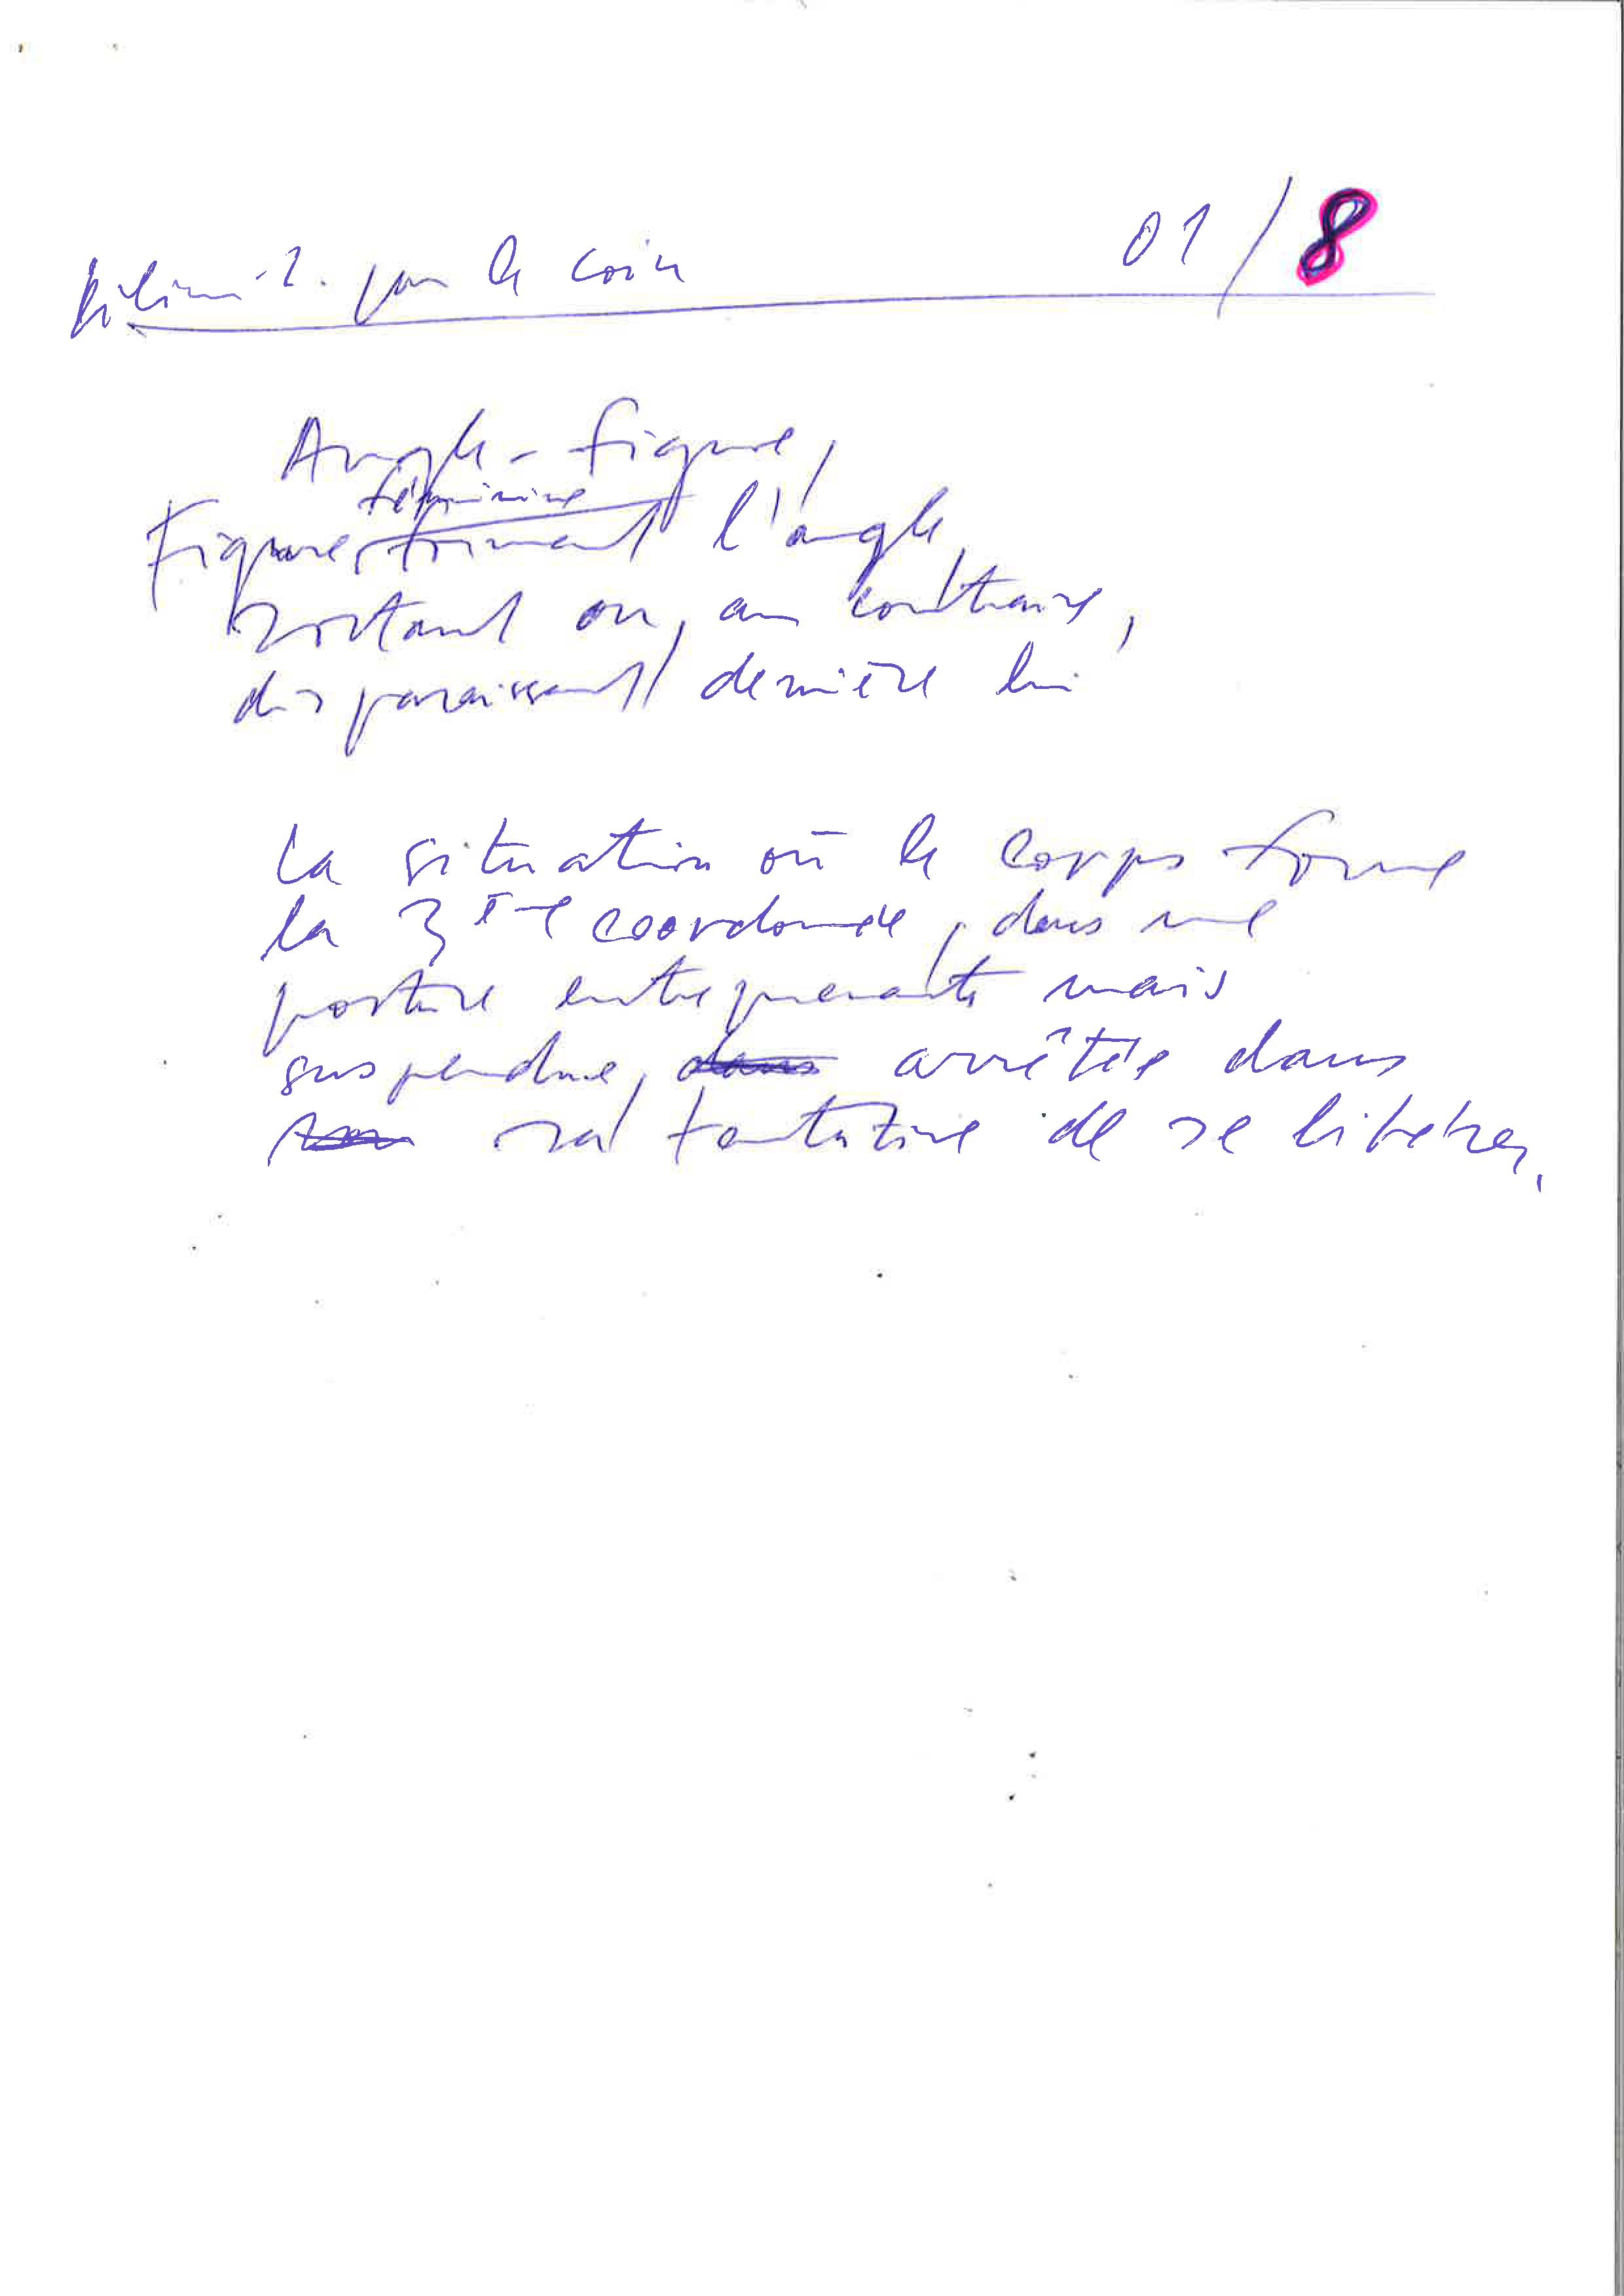 par le coin 01/8
Angle-figure,
féminine
Figure, formant l'angle,
sortant ou, au contraire,
disparaissant derrière lui
La situation où le corps forme
la 3ème coordonnée, dans une
posture entreprenante mais
suspendue, dans arrêtée dans
sa tentative de se liberer.